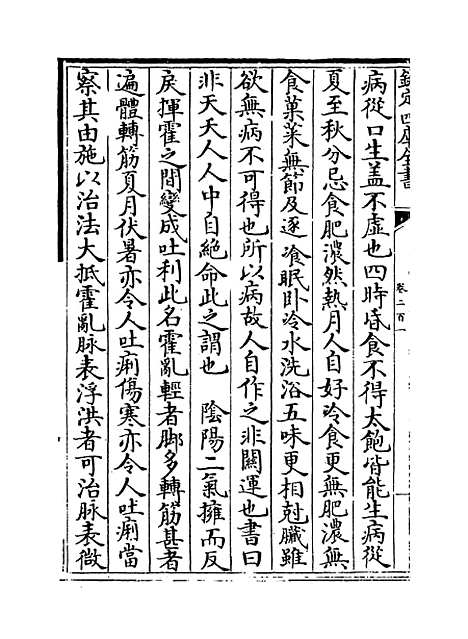 欽定四庫全書
卷二百一
病從口生盖不虛也四時昏食不得太飽皆能生病從
夏至秋分忌食肥濃然熱月人自好冷食更無肥濃無
食菓菜無節及逐飡眠卧冷水洗浴五味更相尅臟雖
欲無病不可得也所以病故人自作之非關運也書曰
非天夭人人中自絶命此之謂也　陰陽二氣擁而反
戾揮霍之間變成吐利此名霍亂輕者脚多轉筋甚者
遍體轉筋夏月伏暑亦令人吐痢傷寒亦令人吐痢當
察其由施以治法大抵霍亂脉表浮洪者可治脉表微